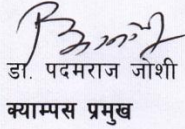 डा. पदमराज जोशी
क्याम्पस प्रमुख